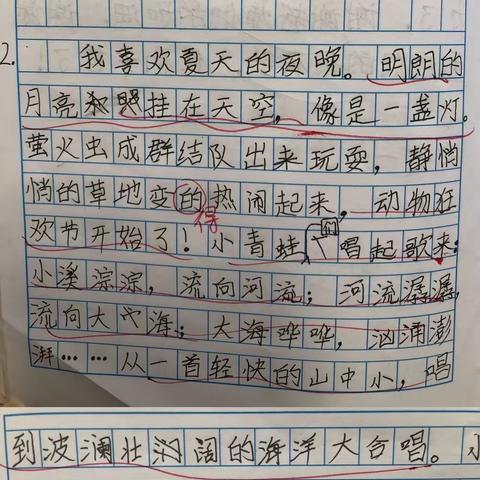 2. 我喜欢夏天的夜晚。明朗的
月亮悬挂在天空，像是一盏灯。
萤火虫成群结队出来玩耍，静悄
悄的草地变的热闹起来，动物狂
得
欢节开始了！小青蛙们也唱起歌来；
小溪淙淙，流向河流；河流潺潺，
流向大海；大海哗哗，汹涌澎
湃……从一首轻快的山中小，唱
到波澜壮阔的海洋大合唱。小